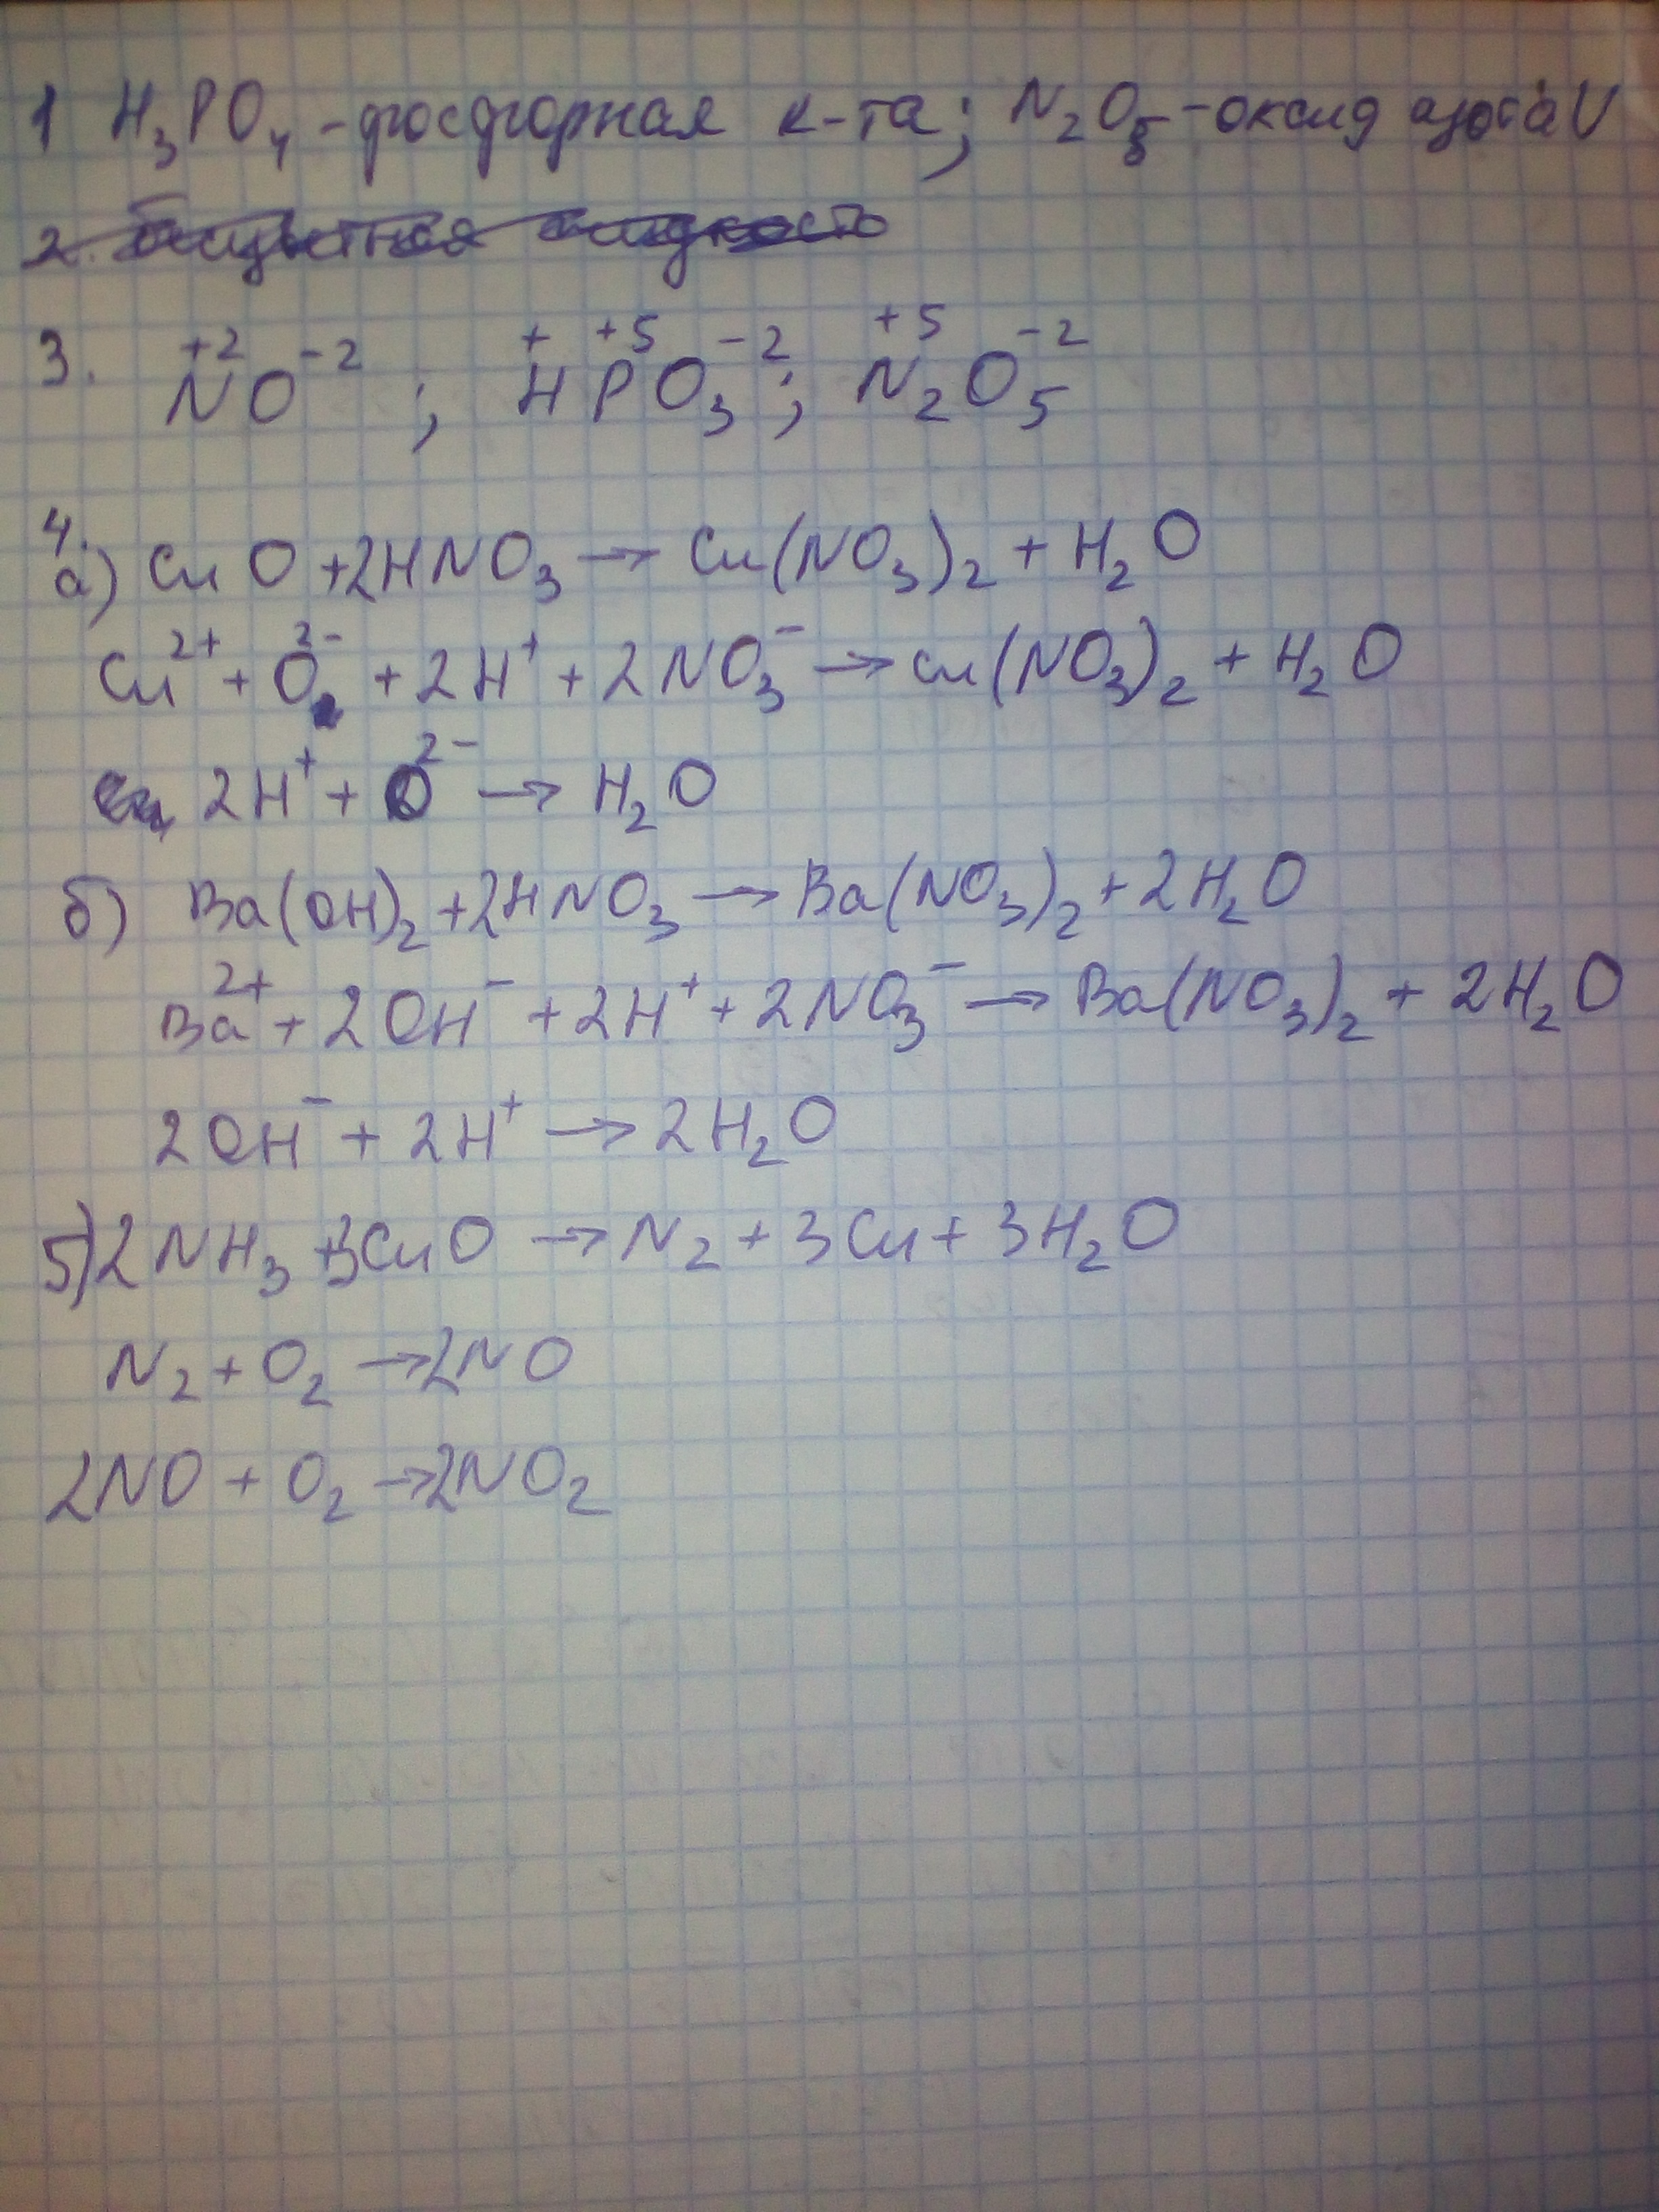 1 H₃PO₄ - фосфорная к-та; N₂O₅ - оксид азота V
2. бесцветная жидкость
3. N⁺²O⁻² ; H⁺P⁺⁵O₃⁻²; N₂⁺⁵O₅⁻²
4.
а) CuO + 2HNO₃ → Cu(NO₃)₂ + H₂O
Cu²⁺ + O²⁻ + 2H⁺ + 2NO₃⁻ → Cu(NO₃)₂ + H₂O
2H⁺ + O²⁻ → H₂O
б) Ba(OH)₂ + 2HNO₃ → Ba(NO₃)₂ + 2H₂O
Ba²⁺ + 2OH⁻ + 2H⁺ + 2NO₃⁻ → Ba(NO₃)₂ + 2H₂O
2OH⁻ + 2H⁺ → 2H₂O
5) 2NH₃ + 3CuO → N₂ + 3Cu + 3H₂O
N₂ + O₂ → 2NO
2NO + O₂ → 2NO₂